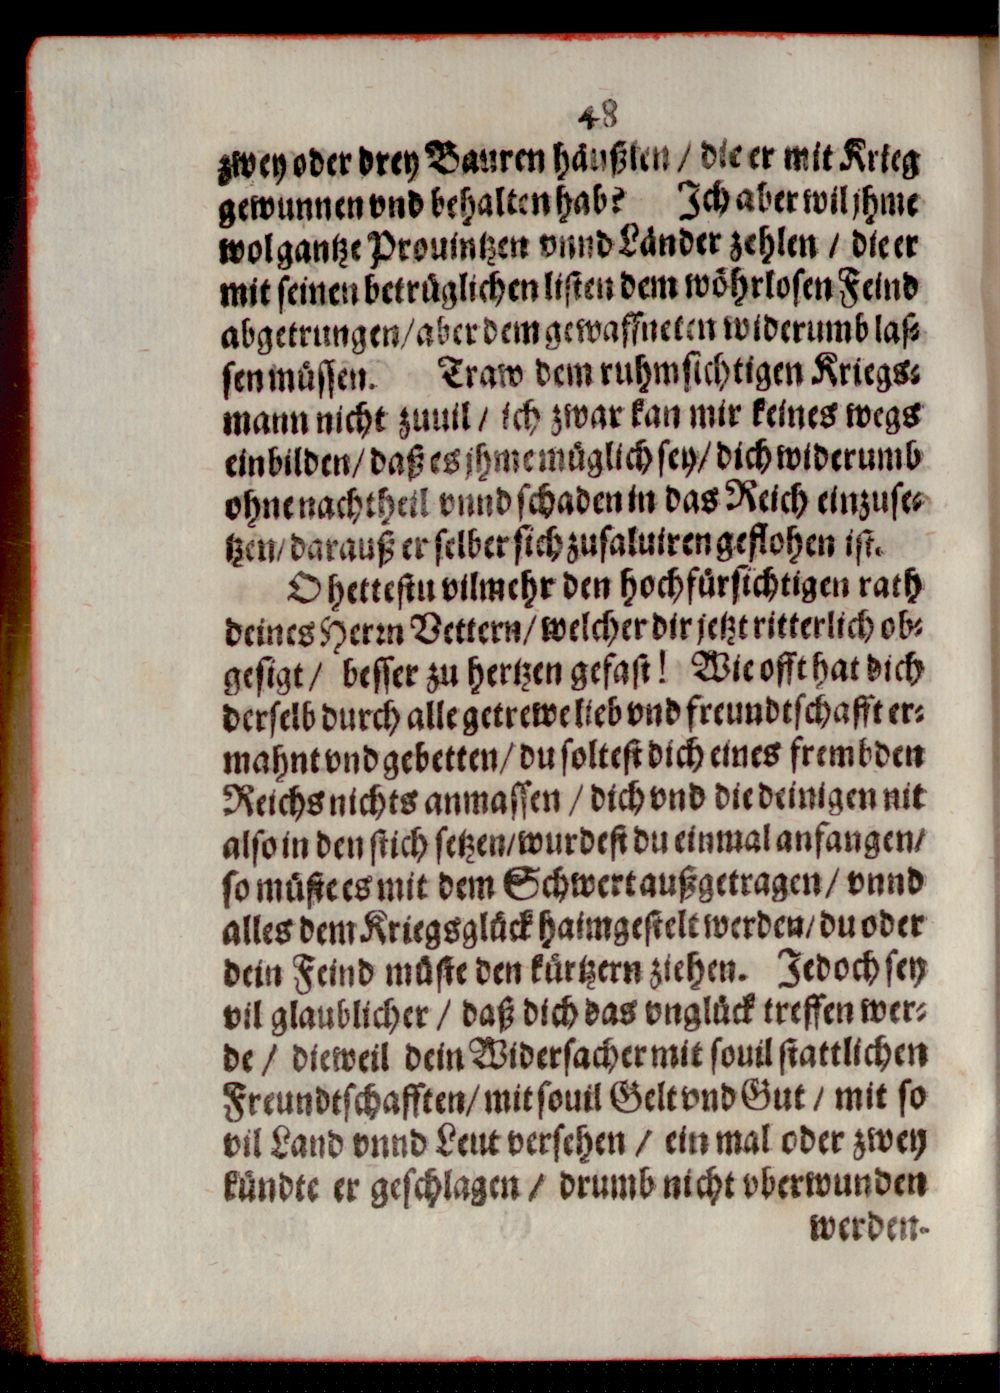 48
zwey oder drey Bauren häußlen / die er mit Krieg
gewunnen vnd behalten hab? Ich aber wil jhme
wol gantze Prouintzen vnnd Länder zehlen / die er
mit seinen betrüglichen listen dem wöhrlosen Feind
abgetrungen / aber dem gewaffneten widerumb las-
sen müssen. Traw dem ruhmsichtigen Kriegs-
mann nicht zuuil / ich zwar kan mir keines wegs
einbilden / daß es jhme müglich sey / dich widerumb
ohne nachtheil vnnd schaden in das Reich einzuse-
tzen / darauß er selber sich zusaluiren geflohen ist.
O hettestu vilmehr den hochfürsichtigen rath
deines Herrn Vettern / welcher dir jetzt ritterlich ob-
gesigt / besser zu hertzen gefast! Wie offt hat dich
derselb durch alle getrewe lieb vnd freundtschafft er-
mahnt vnd gebetten / du soltest dich eines frembden
Reichs nichts anmassen / dich vnd die deinigen nit
also in den stich setzen / wurdest du einmal anfangen /
so müste es mit dem Schwert außgetragen / vnnd
alles dem Kriegsglück haimgestelt werden / du oder
dein Feind müste den kürtzern ziehen. Jedoch sey
vil glaublicher / daß dich das vnglück treffen wer-
de / dieweil dein Widersacher mit souil stattlichen
Freundtschafften / mit souil Gelt vnd Gut / mit so
vil Land vnnd Leut versehen / ein mal oder zwey
kündte er geschlagen / drumb nicht vberwunden
werden.